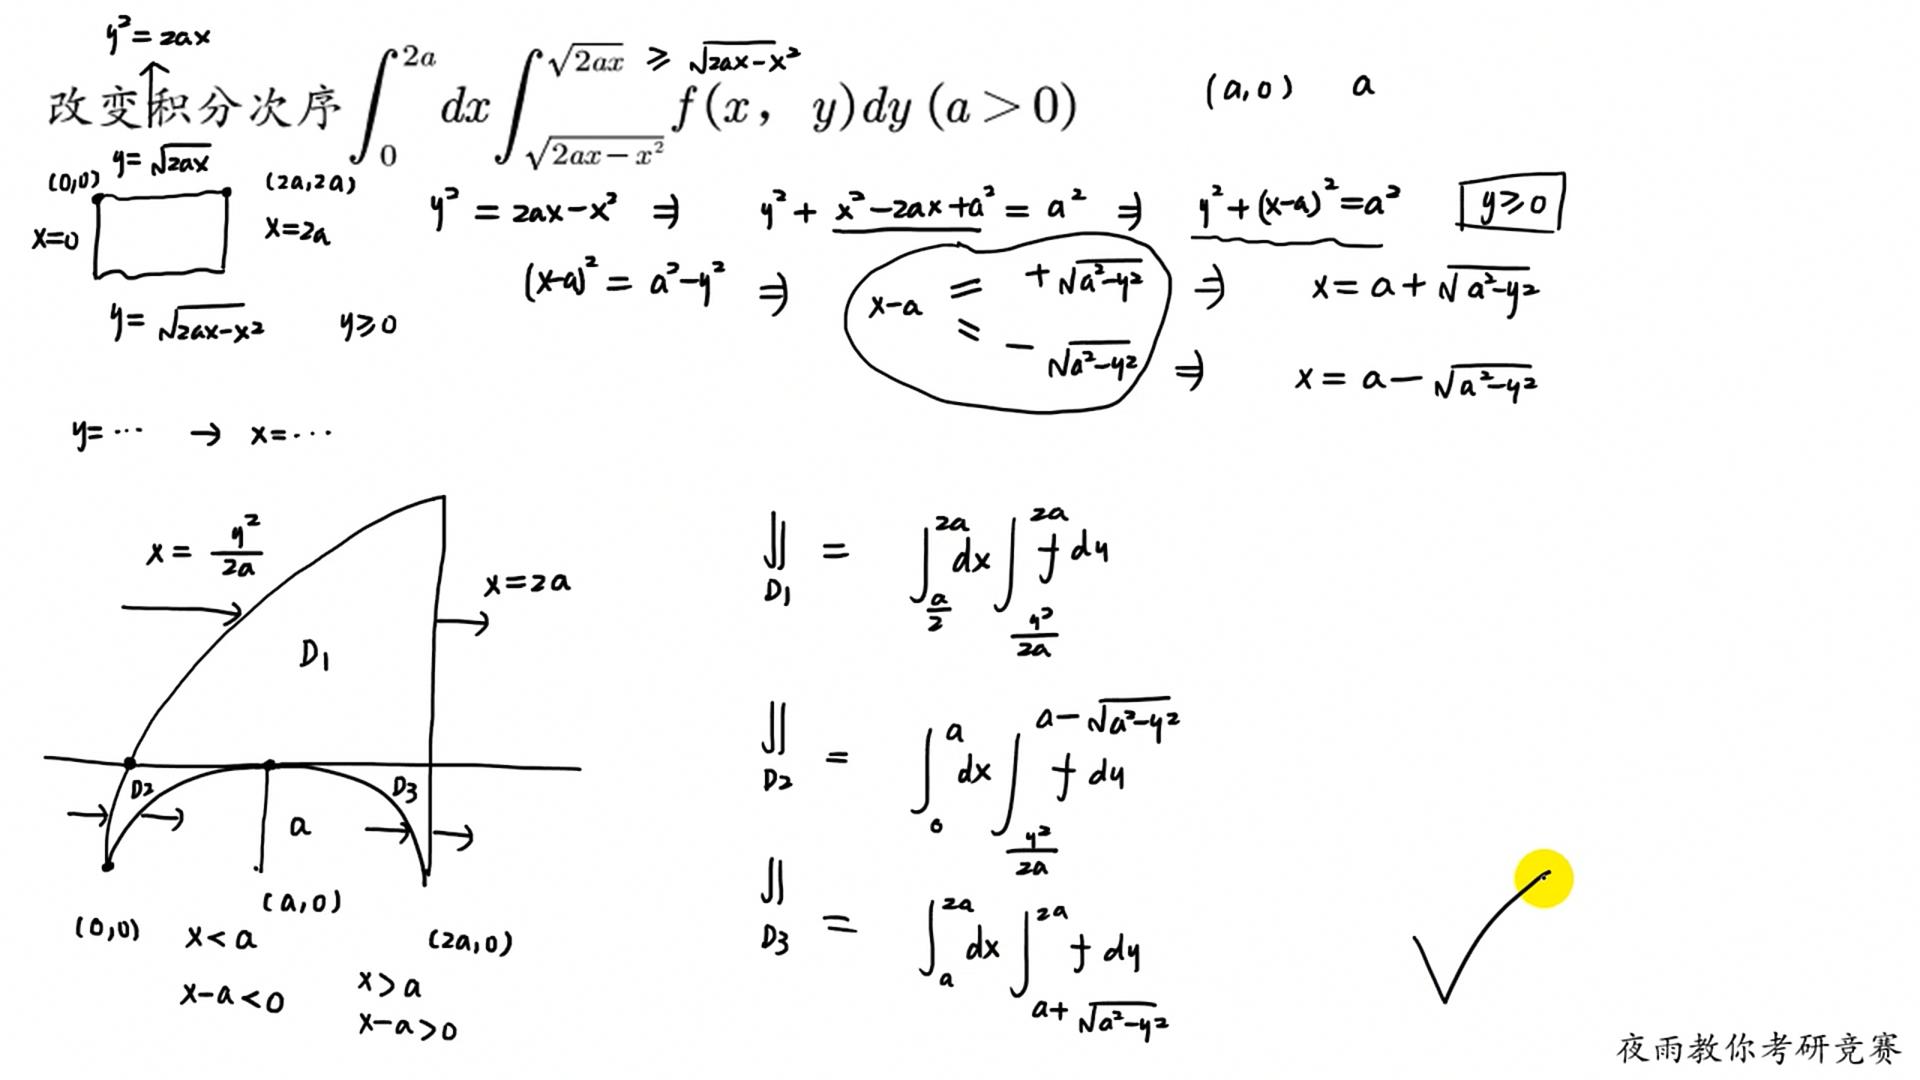 y² = 2ax
改变积分次序 ∫₀^{2a} dx ∫_{√(2ax−x²)}^{√(2ax)} f(x, y)dy (a > 0)
⩾ √(2ax−x²)
(a,0) a
y = √(2ax)
(0,0) (2a,2a)
x=0 x=2a
y = √(2ax−x²) y⩾0
y² = 2ax−x² ⇒ y² + x²−2ax+a² = a² ⇒ y²+(x−a)²=a² y⩾0
(x−a)² = a²−y² ⇒ x−a = +√(a²−y²) ⇒ x = a+√(a²−y²)
= −√(a²−y²) ⇒ x = a−√(a²−y²)
y=··· → x=···
x = y²/2a
x=2a
D₁
D2 D3
a
(a,0)
(0,0) (2a,0)
x<a
x−a<0
x>a
x−a>0
∬_{D₁} = ∫_{a/2}^{2a} dx ∫_{y²/2a}^{2a} f dy
∬_{D2} = ∫₀^{a} dx ∫_{y²/2a}^{a−√(a²−y²)} f dy
∬_{D3} = ∫_{a}^{2a} dx ∫_{a+√(a²−y²)}^{2a} f dy
夜雨教你考研竞赛